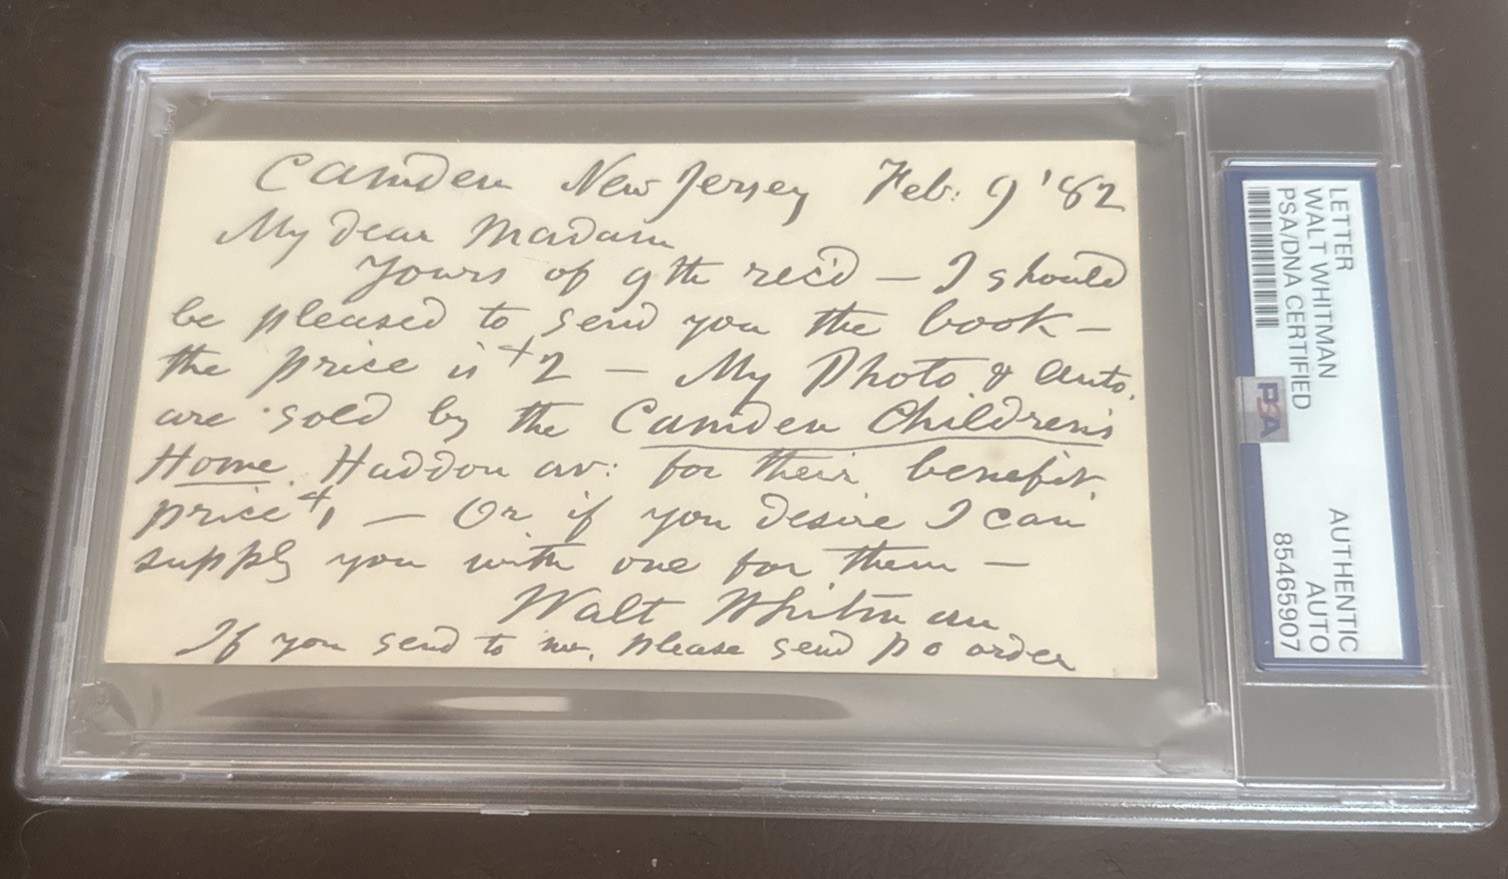 Camden New Jersey Feb: 9 '82
My dear Madam
Yours of 9th rec'd — I should
be pleased to send you the book —
the price is $2 — My Photo & auto.
are sold by the Camden Children's
Home, Haddon av: for their benefit,
price $1 — Or if you desire I can
supply you with one for them —
Walt Whitman
If you send to me, please send p o order
LETTER
WALT WHITMAN
PSA/DNA CERTIFIED
AUTHENTIC
AUTO
85465907
PSA